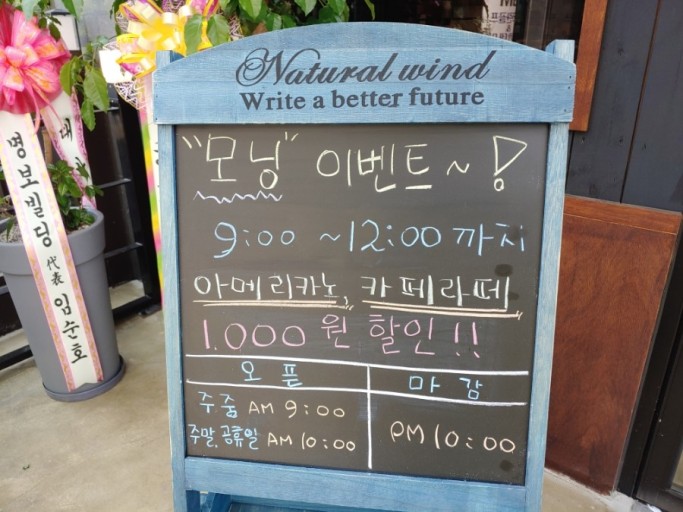 Natural wind
Write a better future
"모닝" 이벤트 ~ !
9:00 ~12:00 까지
아메리카노, 카페라떼
1.000 원 할인 !!
오픈 마감
주중 AM 9:00
PM 10:00
주말, 공휴일 AM 10:00
명보빌딩 代表 임순호